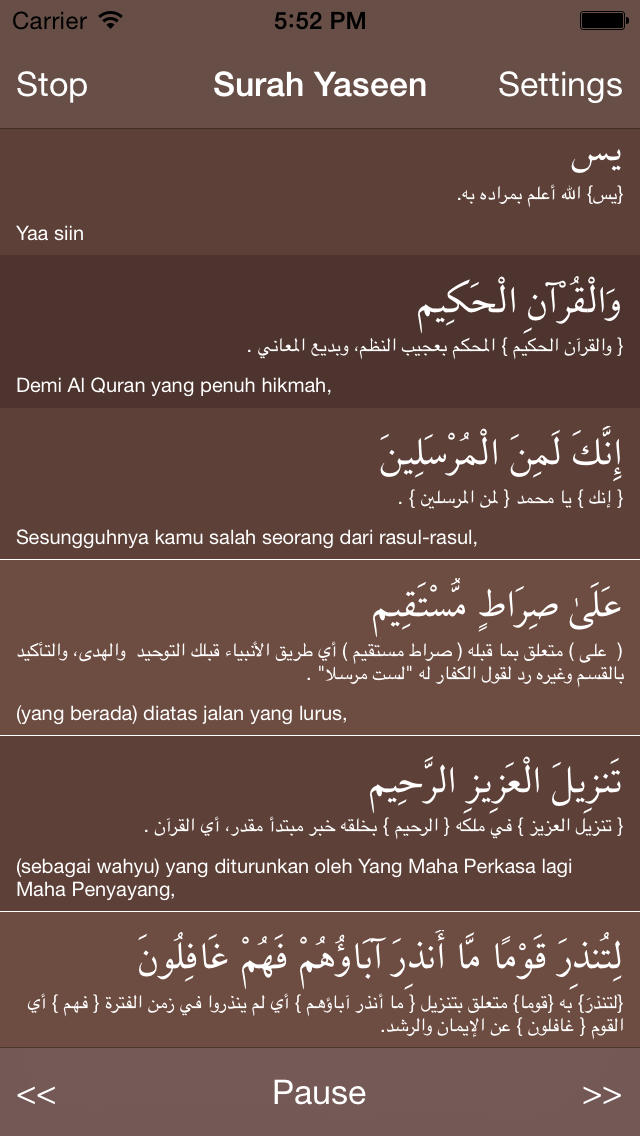 Carrier 5:52 PM
Stop Surah Yaseen Settings
يس
{يس} الله أعلم بمراده به.
Yaa siin
وَالْقُرْآنِ الْحَكِيمِ
{ والقرآن الحكيم } المحكم بعجيب النظم، وبديع المعاني .
Demi Al Quran yang penuh hikmah,
إِنَّكَ لَمِنَ الْمُرْسَلِينَ
{ إنك } يا محمد { لمن المرسلين } .
Sesungguhnya kamu salah seorang dari rasul-rasul,
عَلَىٰ صِرَاطٍ مُّسْتَقِيمٍ
( على ) متعلق بما قبله ( صراط مستقيم ) أي طريق الأنبياء قبلك التوحيد والهدى، والتأكيد
بالقسم وغيره رد لقول الكفار له "لست مرسلا" .
(yang berada) diatas jalan yang lurus,
تَنزِيلَ الْعَزِيزِ الرَّحِيمِ
{ تنزيل العزيز } في ملكه { الرحيم } بخلقه خبر مبتدأ مقدر، أي القرآن .
(sebagai wahyu) yang diturunkan oleh Yang Maha Perkasa lagi
Maha Penyayang,
لِتُنذِرَ قَوْمًا مَّا أُنذِرَ آبَاؤُهُمْ فَهُمْ غَافِلُونَ
{لتنذرَ} به {قوما} متعلق بتنزيل { ما أنذر آباؤهم } أي لم ينذروا في زمن الفترة { فهم } أي
القوم { غافلون } عن الإيمان والرشد.
<< Pause >>